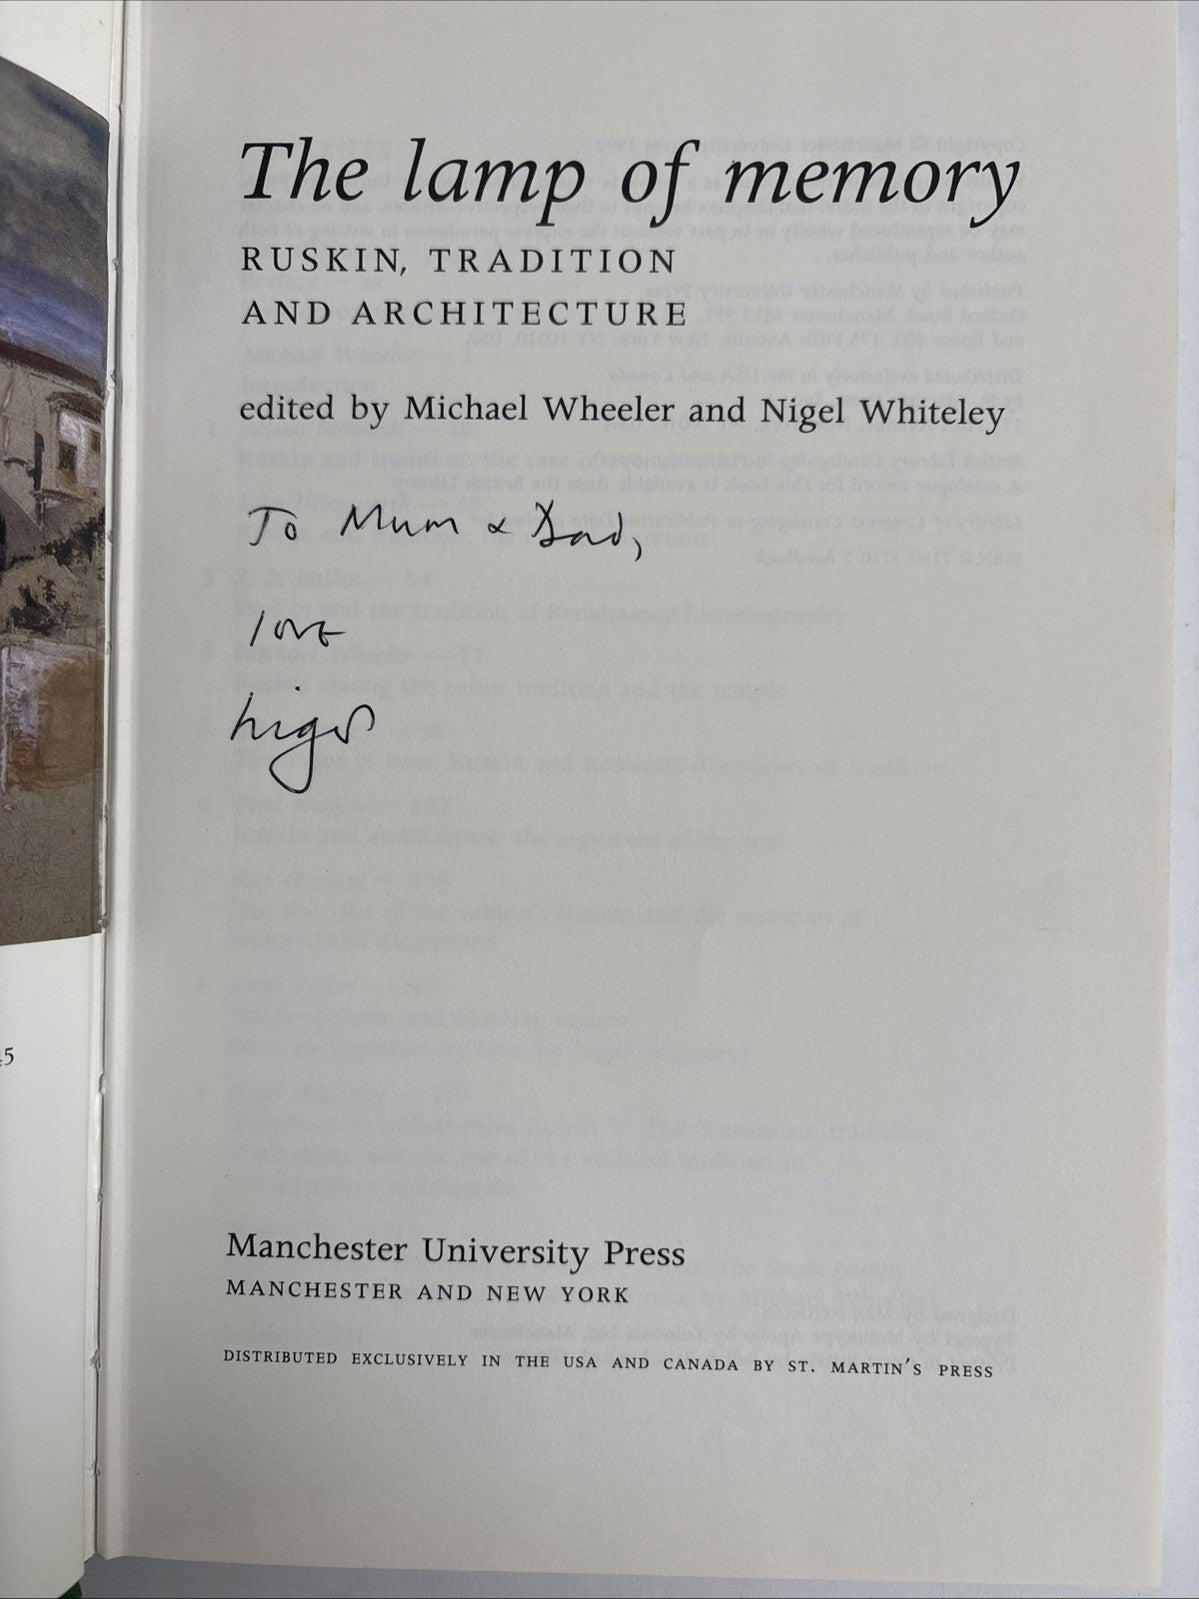 The lamp of memory
RUSKIN, TRADITION
AND ARCHITECTURE
edited by Michael Wheeler and Nigel Whiteley
To Mum & Dad,
love
Nigel
Manchester University Press
MANCHESTER AND NEW YORK
DISTRIBUTED EXCLUSIVELY IN THE USA AND CANADA BY ST. MARTIN'S PRESS
45